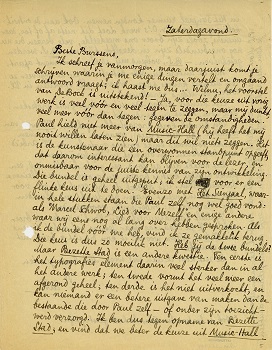 Zaterdagavond.
Beste Burssens,
Ik schreef je vanmorgen, maar daarjuist komt je
schrijven waarin je me enige dingen vertelt en omgaand
antwoord vraagt; ik haast me dus. — Welnu, het voorstel
van De Bock is uitstekend! — Ja, voor die keuze uit vorig
werk is veel vóór en veel tegen te zeggen, maar mij dunkt
veel meer vóór dan tegen: gegeven de omstandigheden.
Paul hield niet meer van Music-Hall (hij heeft het mij
nooit willen laten zien), maar dit wil niets zeggen, het
is de kunstenaar die een overwonnen standpunt opgeeft
dat daarom interessant kan blijven voor de lezer, en
onmisbaar voor de juiste kennis van zijn ontwikkeling.
Die bundel is geheel uitgeput; ik stel voor een
flinke keus uit te doen. Evenzo met Het Sienjaal, waar-
in het stukken staan die Paul zelf nog wel goed vond:
als Marcel Schwob, Lied voor Mezelf en enige andere
waar wij een nog al eens over hebben gesproken. Als
ik de bundel voor me heb, vind ik ze gemakkelijk terug.
De keus is dus zo moeilik niet. Heb jij de twee bundels?
Maar Bezette Stad is een andere kwestie. Ten eerste is
het typografies element daarin veel sterker dan in al
het andere werk; ten twede vormt het veel meer een
afgerond geheel; ten derde is het niet uitverkocht, en
kan niemand er een betere uitgave van maken dan de
bestaande die door Paul zelf — of onder zijn toezicht —
werd verzorgd. Ik ben dus tegen opname van Bezette
Stad, en vind dat we beter de keuze uit Music-Hall